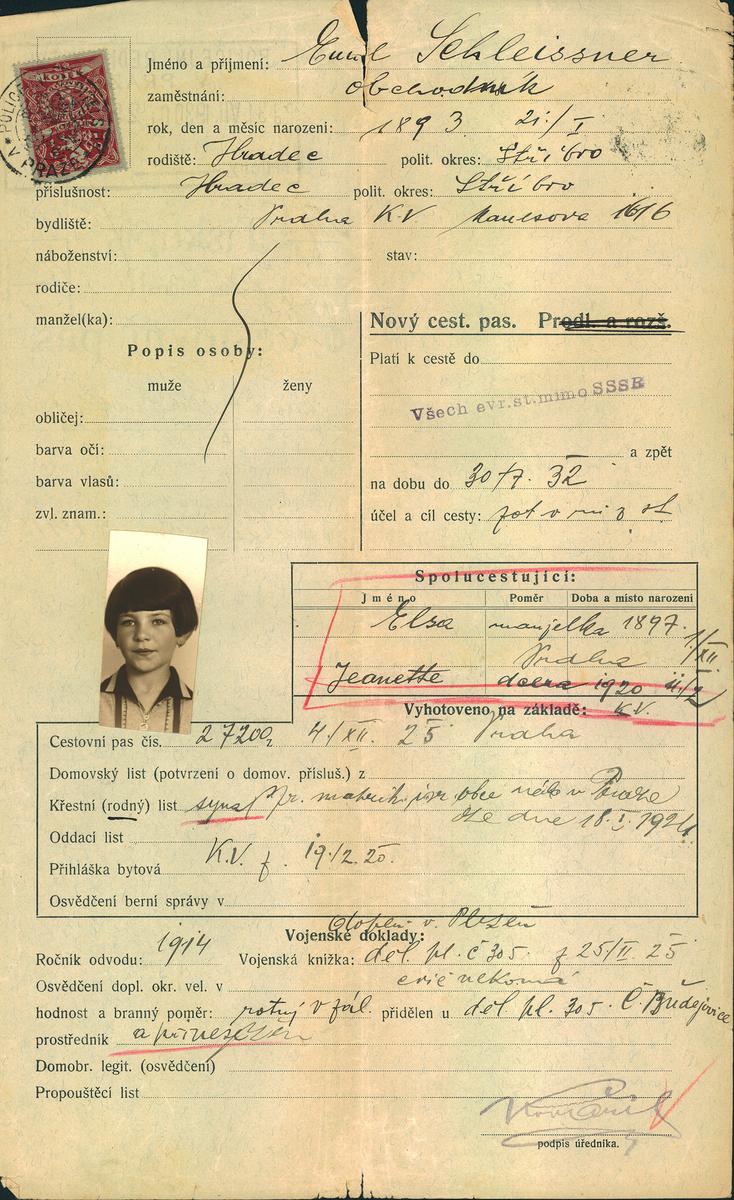 POLICE
V PRAZE
KOLEK
Jméno a příjmení: Emil Schleissner
zaměstnání: obchodník
rok, den a měsíc narození: 1893 21./I
rodiště: Hradec polit. okres: Stříbro
příslušnost: Hradec polit. okres: Stříbro
bydliště: Praha K.V. Manesova 1616
náboženství: stav:
rodiče:
manžel(ka):
Nový cest. pas. Prodl. a rozš.
Popis osoby:
muže ženy
obličej:
barva očí:
barva vlasů:
zvl. znam.:
Platí k cestě do
Všech evr.st.mimo SSSR
a zpět
na dobu do 30/7. 32
účel a cíl cesty:
Spolucestující:
Jméno Poměr Doba a místo narození
Elsa manželka 1897. 1/XII.
Praha
Jeanette dcera 1920
K.V.
Vyhotoveno na základě:
Cestovní pas čís. 27200 4./XII. 25 Praha
Domovský list (potvrzení o domov. přísluš.) z
Křestní (rodný) list syna obce v Praze
ze dne 18.
Oddací list
Přihláška bytová K.V. 19./2. 20.
Osvědčení berní správy v
Vojenské doklady:
doplň. v. Plzeň
Ročník odvodu: 1914 Vojenská knížka: děl. pl. č 305. 25/II 25
Osvědčení dopl. okr. vel. v
hodnost a branný poměr: rotný v zál. přidělen u děl. pl. 305. Č. Budějovice
prostředník
Domobr. legit. (osvědčení)
Propouštěcí list
podpis úředníka.